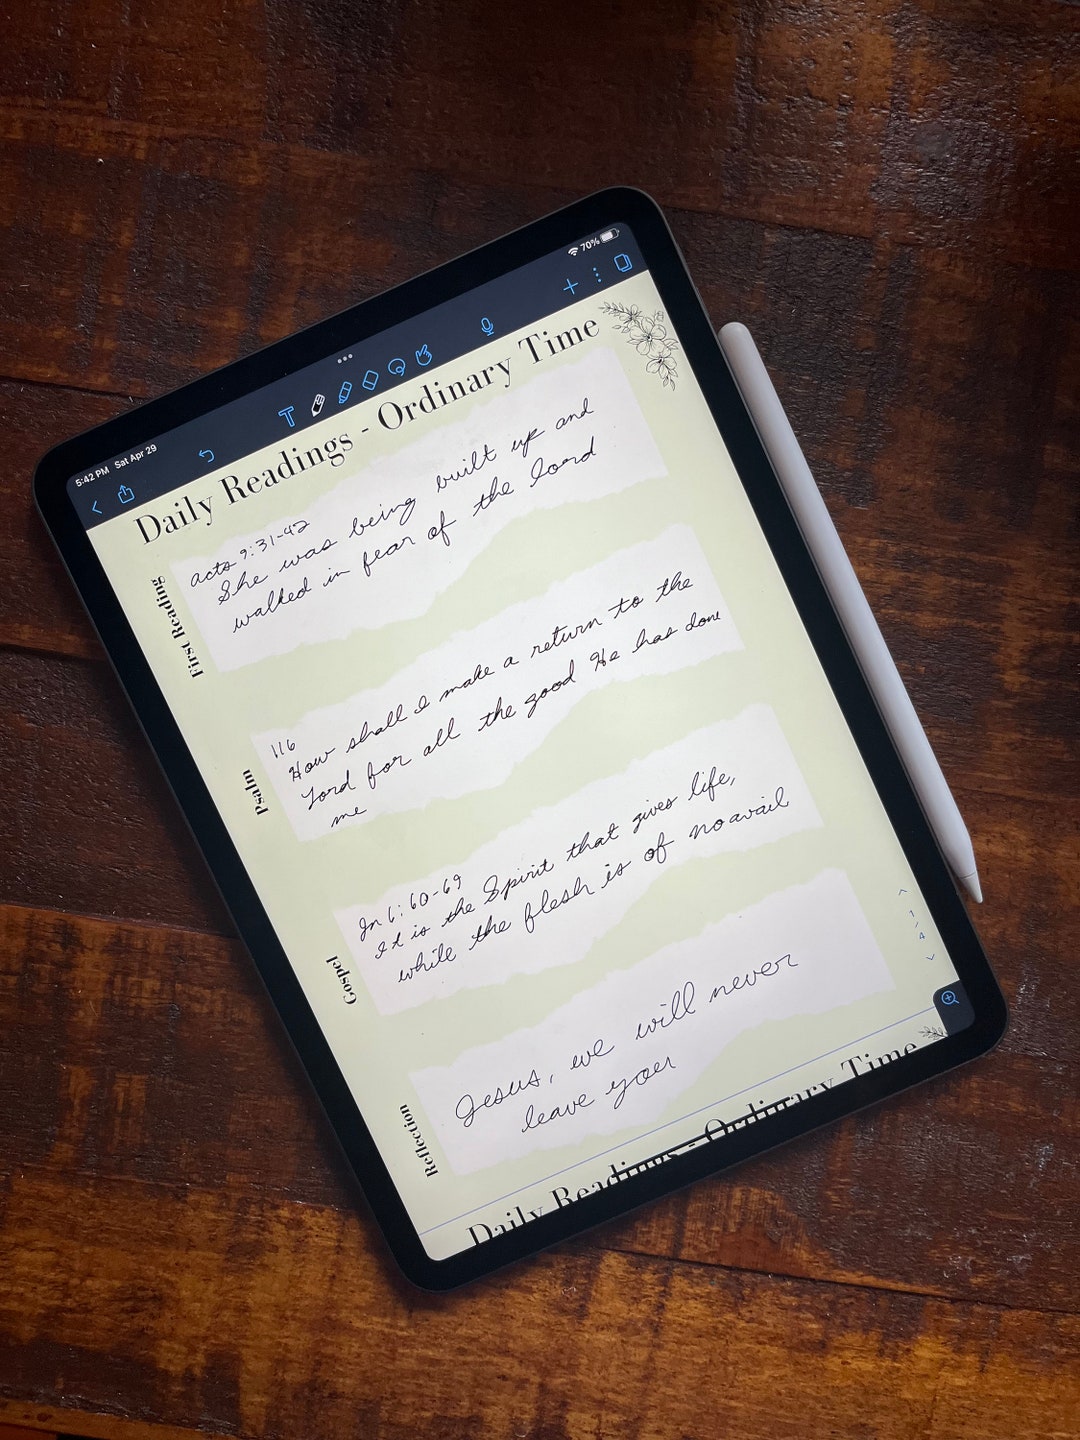 5:42 PM Sat Apr 29
70%
Daily Readings - Ordinary Time
First Reading
acts 9:31-42
She was being built up and
walked in fear of the lord
Psalm
116
How shall I make a return to the
Lord for all the good He has done
me
Gospel
Jn 6:60-69
It is the Spirit that gives life,
while the flesh is of no avail
Reflection
Jesus, we will never
leave you
1/4
Daily Readings - Ordinary Time